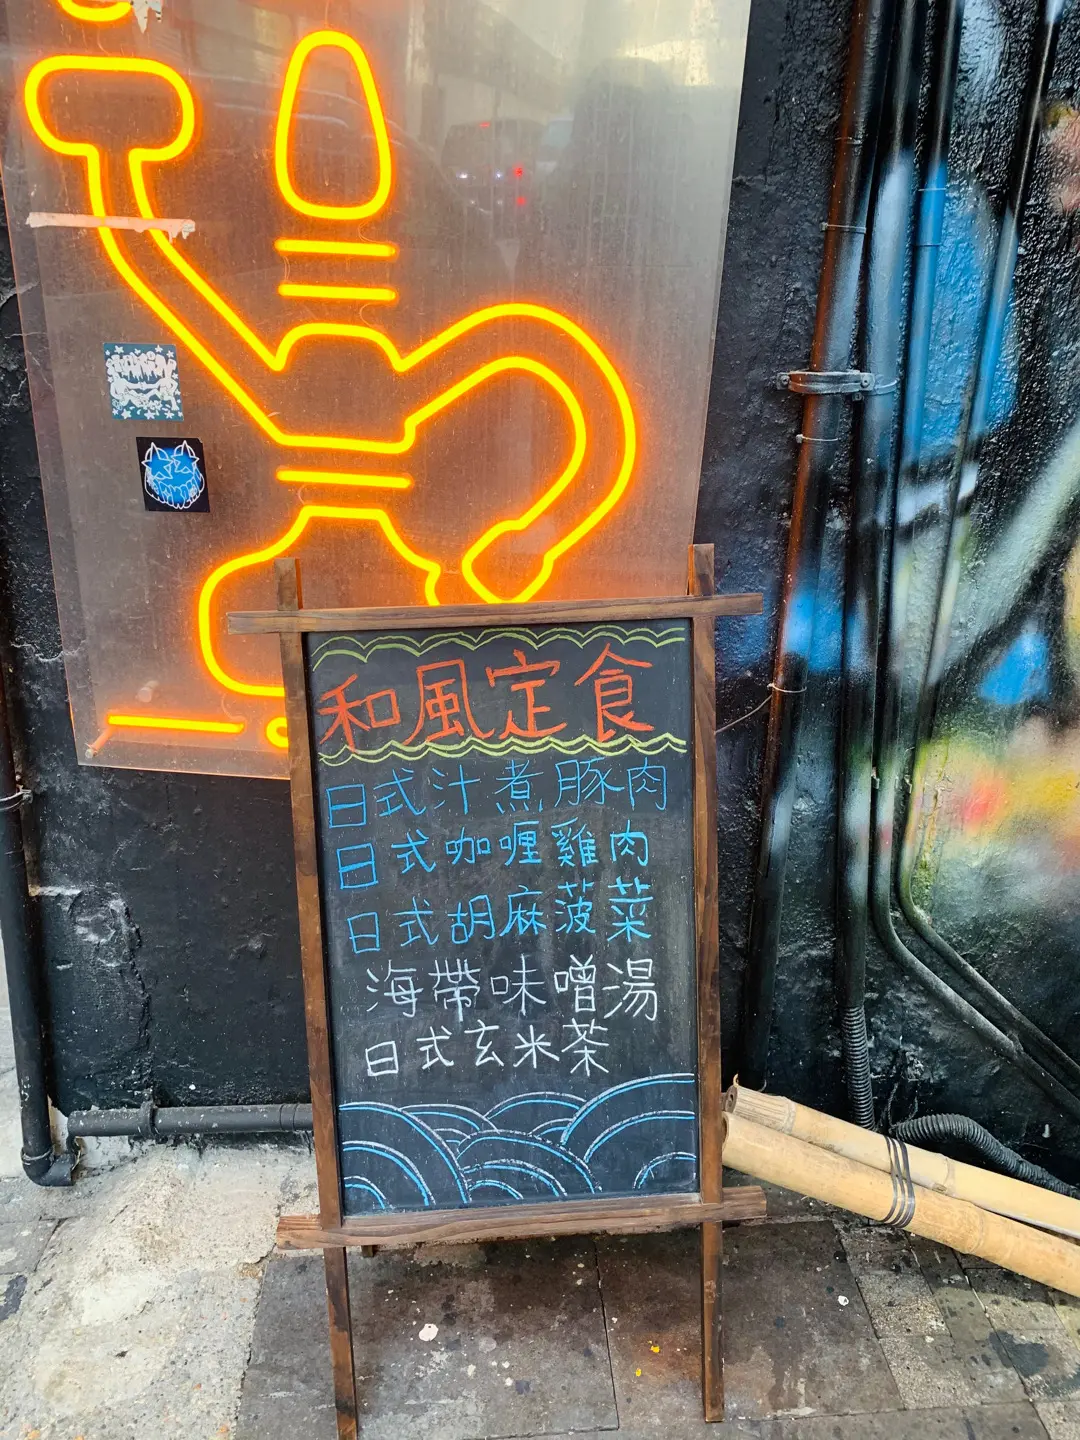 和風定食
日式汁煮豚肉
日式咖喱雞肉
日式胡麻菠菜
海帶味噌湯
日式玄米茶